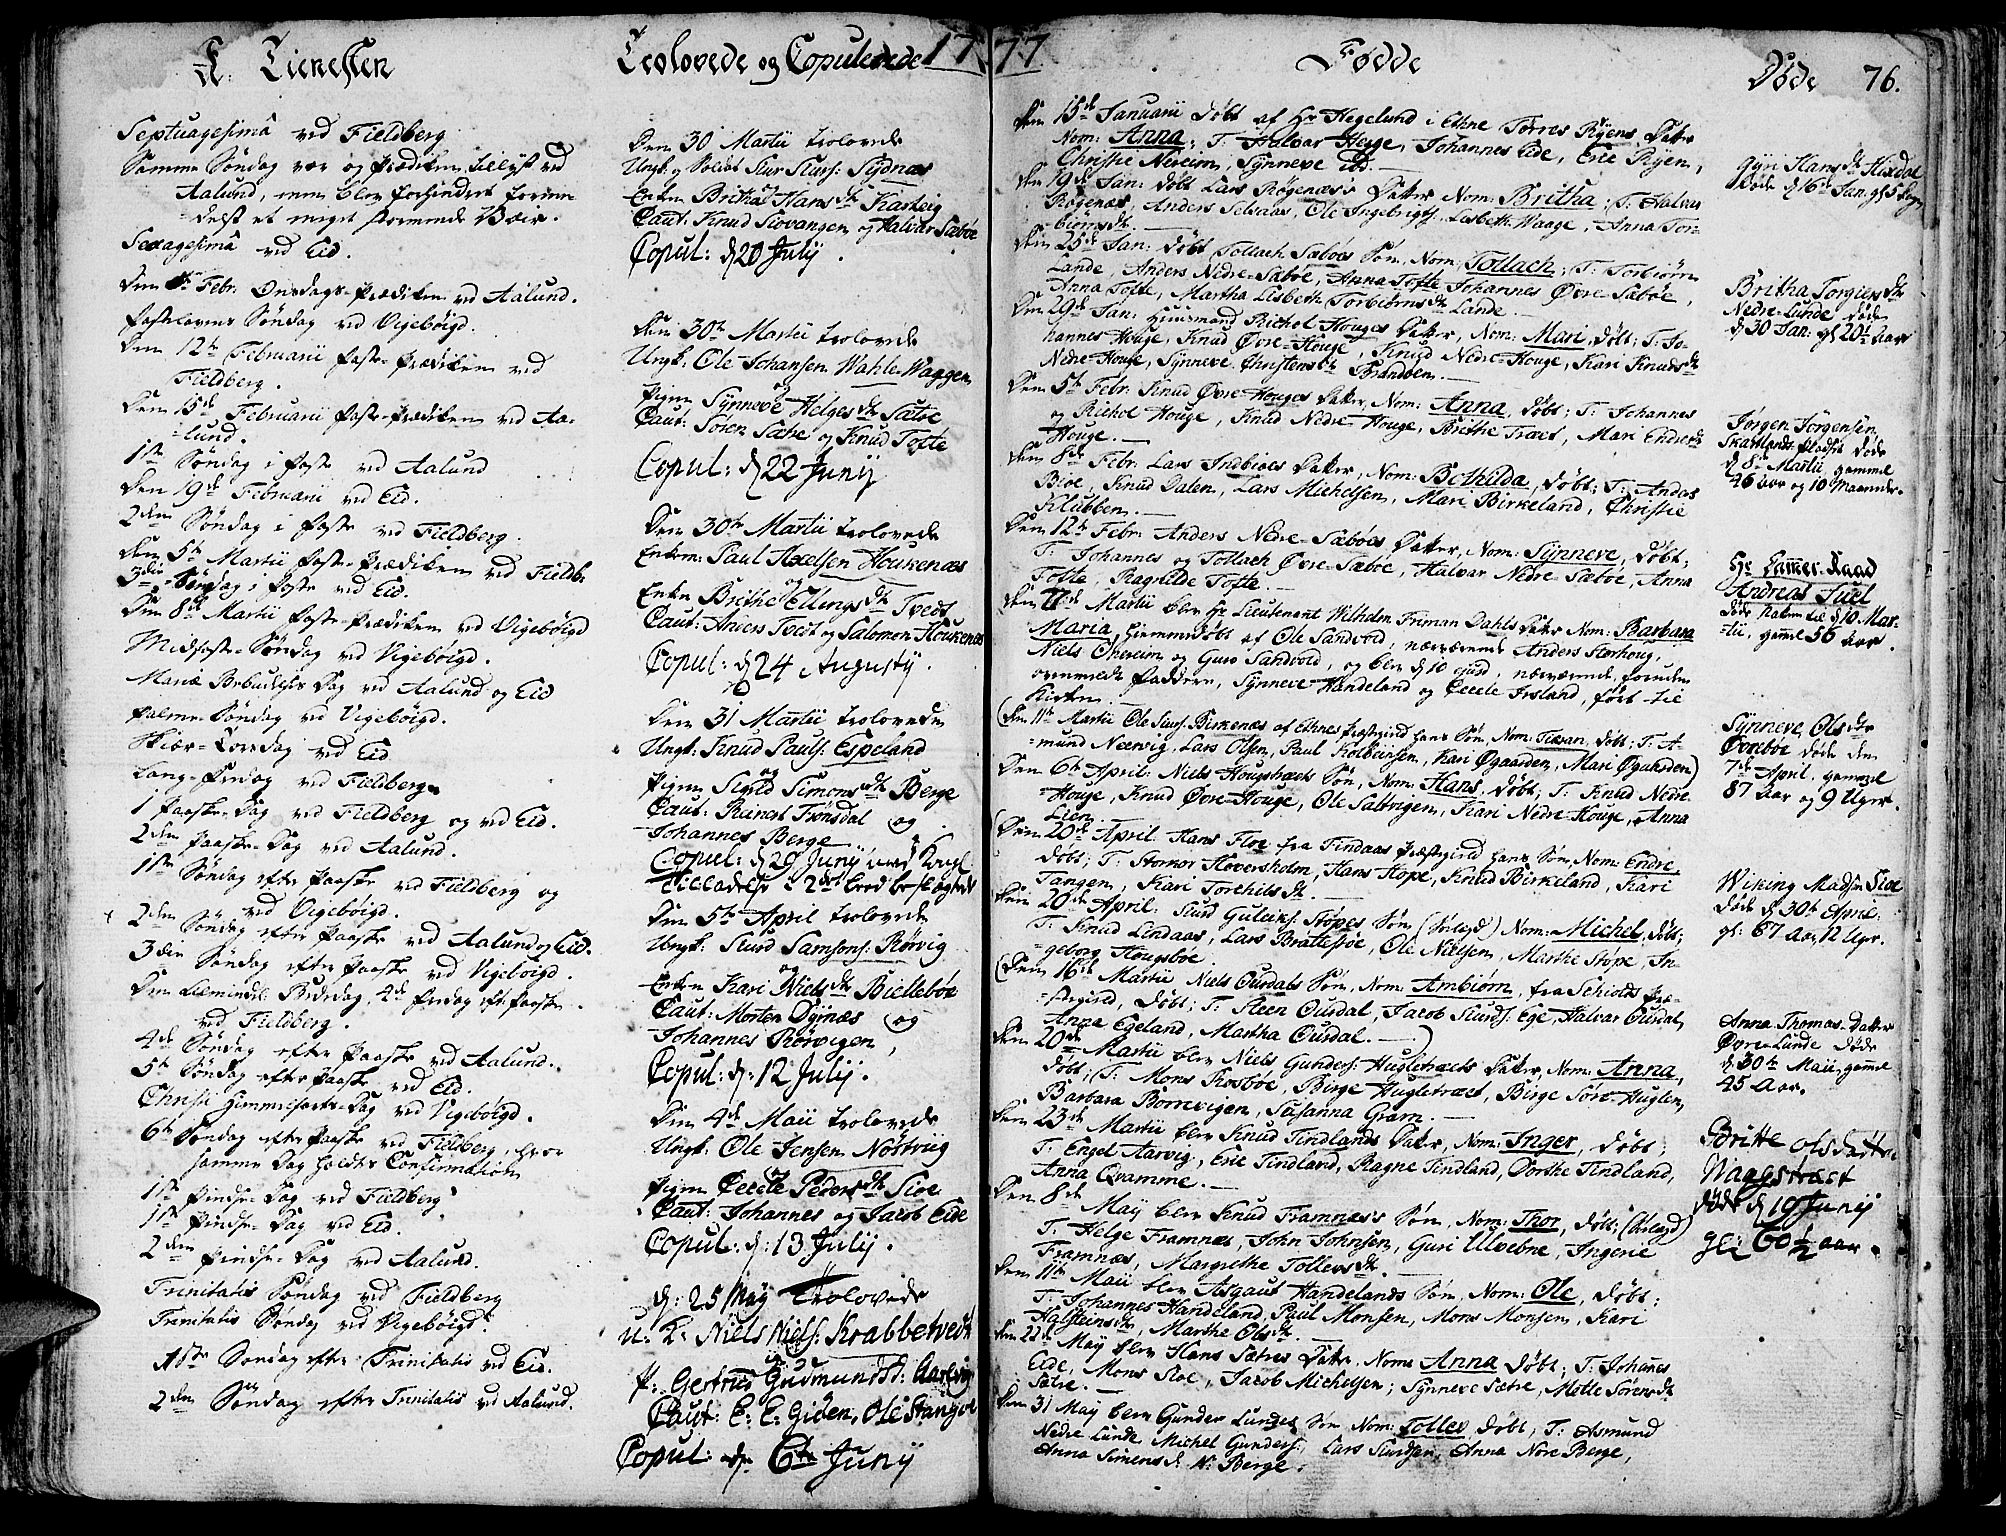 K: Tienesten
Septuagesima ved Fieldberg
Samme Søndag var og Prædiken tillyst ved
Aalund, men blev forhindret formedelst
et meget stormende Veir.
Sexagesima ved Eid.
Den Febr: Onsdags-Prædiken ved Aalund.
Fastelavens Søndag ved Vigebøigd.
Den 12te Februarii Faste-Prædiken ved
Fieldberg.
Den 15de Februarii Faste-Prædiken ved Aalund.
1ste Søndag i Faste ved Aalund
Den 19de Februarii ved Eid.
2den Søndag i Faste ved Fieldberg.
Den 5te Martii Faste-Prædiken ved Fieldb:
3die Søndag i Faste ved Eid.
Den 8de Martii Faste-Prædiken ved Vigebøigd
Midfaste-Søndag ved Vigebøigd.
Mariæ Bebudelses Dag ved Aalund og Eid
Palme-Søndag ved Vigebøigd.
Skiær-Torsdag ved Eid
Lang-Fredag ved Fieldberg
1 Paaske-Dag ved Fieldberg og ved Eid.
2den Paaske-Dag ved Aalund.
1ste Søndag efter Paaske ved Fieldberg og
ved Vigebøigd.
2den Søndag efter Paaske ved Aalund og Eid.
3die Søndag efter Paaske ved Vigebøigd.
Den almindel: Bededag, 4de Fredag eft: Paaske
ved Fieldberg.
4de Søndag efter Paaske ved Aalund.
5te Søndag efter Paaske ved Eid.
Christi Himmelfarts-Dag ved Vigebøigd.
6te Søndag efter Paaske ved Fieldberg, hvor
samme Dag holdtes Confirmation
1ste Pindse-Dag ved Fieldberg
1ste Pindse-Dag ved Eid.
2den Pindse-Dag ved Aalund.
Trinitatis Søndag ved Fieldberg
Trinitatis Søndag ved Vigebøigd.
1ste Søndag efter Trinitatis ved Eid.
2den Søndag efter Trinitatis ved Aalund.
Trolovede og Copulerede 1777
Den 30 Martii trolovede
Ungk: og Soldat Siur Siurs: Sydnæs
Enken Britha Hansdtr Karberg
Caut: Knud Siovangen og Halvar Sæbøe
Copul: d 20 Julij.
Den 30te Martii trolovede
Ungk: Ole Johansen Wahle-Waggen
og
Pigen Synneve Helgesdtr Sætre
Caut: Søren Sætre og Knud Tofte
Copul: d 22 Junij
Den 30te Martii trolovede
Enkem: Paul Axelsen Houkenæs
og
Enken Brithe Ellingsdtr Tvedt
Caut: Anders Tvedt og Salomon Houkenæs
Copul: d 24 Augustij.
Den 31 Martii trolovede
Ungk: Knud Pauls: Espeland
og
Pigen Sigrid Simonsdtr Berge
Caut: Rianel Frønsdal og
Johannes Berge
Copul: d 29 Junij med Kongl:
Tilladelse i 2det Leed beslægtede
Den 5te April trolovede
Ungk: Siurd Samsons: Rørvig
og
Enken Kari Nielsdtr Biellebøe
Caut: Morten Dyrnæs og
Johannes Rørvigen,
Copul: d: 12 Julij.
Den 4de Maii trolovede
Ungk: Ole Jensen Nøstvig
og
Pigen Cecele Pedersdtr Sioe
Caut: Johannes og Jacob Eide
Copul: d: 13 Julij.
d: 25 May Trolovede
U: K: Niels Niels: Krabbetvedt
og
P: Gertrud Gudmundsd: Aarevig
Caut: E: E: Giøen, Ole Stangel
Copul: d: 6te Junij
Fødde
Den 15de Januarii døbt af Hr Hegelund i Ethne Tørres Ryens Datter
Nom: Anna; T: Halvar Houge, Johannes Eide, Eric Ryen,
Christie Nereim, Synneve Eid.
Den 19de Jan: døbt Lars Røgenæs's Datter Nom: Britha; T: Halvar
Røgenæs, Anders Selvaas, Ole Ingebrigts: Lisbeth Waage, Anna Torbiørnsdtr.
Den 25de Jan: døbt Tollach Sæbøes Søn, Nom: Tollach; T: Torbiørn
Lande, Anders Nedre-Sæbøe, Anna Tofte, Johannes Øvre-Sæbøe,
Anna Tofte, Martha Lisbeth Torbiørnsdtr Lande.
Den 29de Jan: Huusmand Richol Houges Datter, Nom: Mari, døbt; T: Johannes
Houge, Knud Øvre-Houge, Knud Nedre-Houge, Kari Knudsdtr
Nedre-Houge, Synneve Christensdtr Brandven.
Den 5te Febr: Knud Øvre-Houges Datter, Nom: Anna, døbt; T: Johannes
og Richol Houge, Knud Nedre-Houge, Brithe Træet, Mari Endresdtr
Houge.
Den 8de Febr: Lars Indbioes Datter, Nom: Bothilda, døbt; T: Andas
Bioe, Knud Dalen, Lars Michelsen, Mari Birkeland, Christie
Klubben.
Den 12te Febr: Anders Nedre-Sæbøes Datter, Nom: Synneve, døbt;
T: Johannes og Tollach Øvre-Sæbøe, Halvar Nedre-Sæbøe, Anna
Tofte, Ragnilde Tofte.
Den Martii blev Hr Lieutenant Wilhelm Friman Dahls Datter Nom: Barbara
Maria, hiemmedøbt af Ole Sandvold, nærværende Anders Storhoug,
Niels Opereim og Guro Sandvold, og blev d 10 ejusd. nærværende foruden
ovenmeldte Faddere, Synneve Handeland og Cecele Irsland, ført til
Kirken.
(Den 11te Martii Ole Siurs: Birkenæs af Ethnes Præstegield hans Søn, Nom: døbt; T: Amund
Neervig, Lars Olsen, Paul Kolbeinsen, Kari Øgaarden, Mari Øgaarden)
Den 6te April: Niels Hougstræets Søn, Nom: Hans, døbt; T: Knud Nedre-
Houge, Knud Øvre-Houge, Ole Saltnigen, Kari Nedre Houge, Anna
Lien.
(Den 20de April Hans Floe fra Findaas Præstegield hans Søn, Nom: Endre,
døbt; T: Stomor Hoversholm, Hans Hope, Knud Birkeland, Kari
Tangen, Kari Torchilsdtr.
Den 20de April: Siurd Guliks: Støpes Søn (Uvlagd) Nom: Michel, døbt;
T: Knud Lindaas, Lars Brattestøe, Ole Nielsen, Marthe Støpe, Ingeborg
Hougsboe.
(Den 16de Martii Niels Ousdals Søn, Nom: Ambiørn, fra Schiolds Præstegield,
døbt; T: Steen Ousdal, Jacob Siurds: Ege, Halvar Ousdal,
Anna Egeland, Martha Ousdal.)
Den 20de Martii blev Niels Gunders: Hugletræets Datter, Nom: Anna,
døbt; T: Mons Rosboe, Birge Hugletræet, Birge Søre-Huglen,
Barbara Borrevigen, Susanna Gram.
Den 23de Martii blev Knud Tindlands Datter, Nom: Inger, døbt;
T: Engel Aarvig, Eric Tindland, Ragne Tindland, Dorthe Tindland,
Anna Qvamme.
Den 8de May blev Knud Framnæs's Søn, Nom: Thor, døbt; (Uvlagd)
T: Helge Framnæs, John Johnsen, Guri Ulvebne, Ingerie
Framnæs, Margrethe Tollevsdtr.
Den 11te Maii blev Asgaut Handelands Søn, Nom: Ole, døbt;
T: Johannes Handeland, Paul Monsen, Mons Monsen, Kari
Halsteinsdtr, Marthe Olsdtr.
Den 22de May blev Hans Sætres Datter, Nom: Anna døbt; T: Johanes
Eide, Mons Sioe, Jacob Michelsen; Synneve Sætre, Mette Sørensdtr
Sætre.
Den 31 May blev Gunder Lundes Søn Nom: Tollev døbt, T: Asmund
Nedre Lunde Michel Gunders:, Lars Siurdsen, Anna Nore Berge,
Anna Simensd N: Berge.
Døde 76.
Gyri Hansdtr Hixdal
døde d 16de Jan. gl: 5 Dage
Britha Torgiersdtr
Nedre-Lunde døde
d 30 Jan: gl: 20½ Aar
Jørgen Jørgensen
Skartlands Pladset døde
d 8de Martii, gammel
46 Aar og 10 Maaneder.
Hr Cammer-Raad
Andreas Juel
døde Natten til d 10 Martii,
gamel 56 Aar.
Synneve Olsdtr
Øvrebøe døde den
7de April, gammel
87 Aar og 9 Uger.
Wiking Madsen Sioe
døde d 30te April:
gl: 67 Aar, 12 Uger.
Anna Thomas-Datter
Øvre-Lunde døde
d 30te Maii, gamel
45 Aar.
Britte Olsdatter
Waagstræet
døde d 19 Junij
gl: 60½ aar.